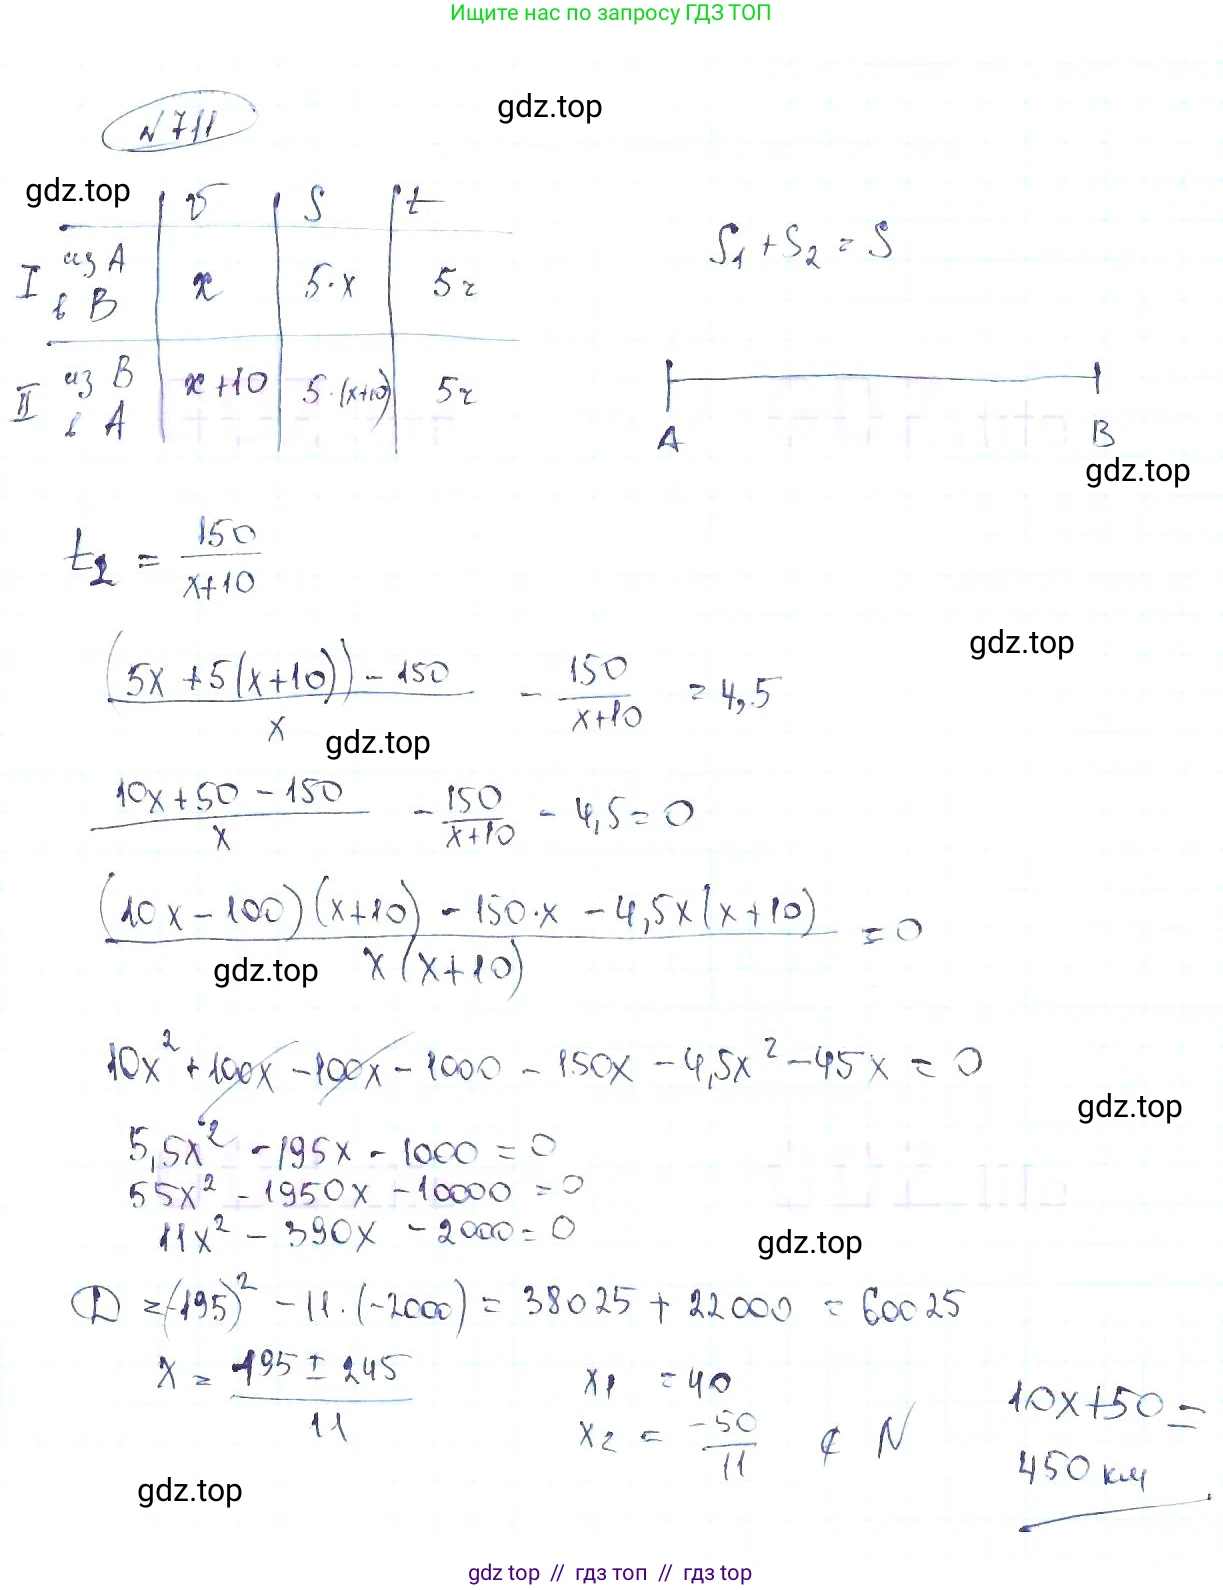 Ищите нас по запросу ГДЗ ТОП
gdz.top
N 711
gdz.top
v S t
I из А в В x 5·x 5ч
S₁ + S₂ = S
II из В в А x+10 5·(x+10) 5ч
A B
gdz.top
t₂ = 150/(x+10)
gdz.top
((5x + 5(x+10)) - 150)/x - 150/(x+10) = 4,5
gdz.top
(10x + 50 - 150)/x - 150/(x+10) - 4,5 = 0
((10x - 100)(x+10) - 150·x - 4,5x(x+10))/(x(x+10)) = 0
gdz.top
10x² + 100x - 100x - 1000 - 150x - 4,5x² - 45x = 0
gdz.top
5,5x² - 195x - 1000 = 0
55x² - 1950x - 10000 = 0
11x² - 390x - 2000 = 0
gdz.top
D = (-195)² - 11·(-2000) = 38025 + 22000 = 60025
x = (195 ± 245)/11
x₁ = 40
x₂ = -50/11 ∉ N
10x+50 =
450 км
gdz.top
gdz top // гдз топ // гдз top